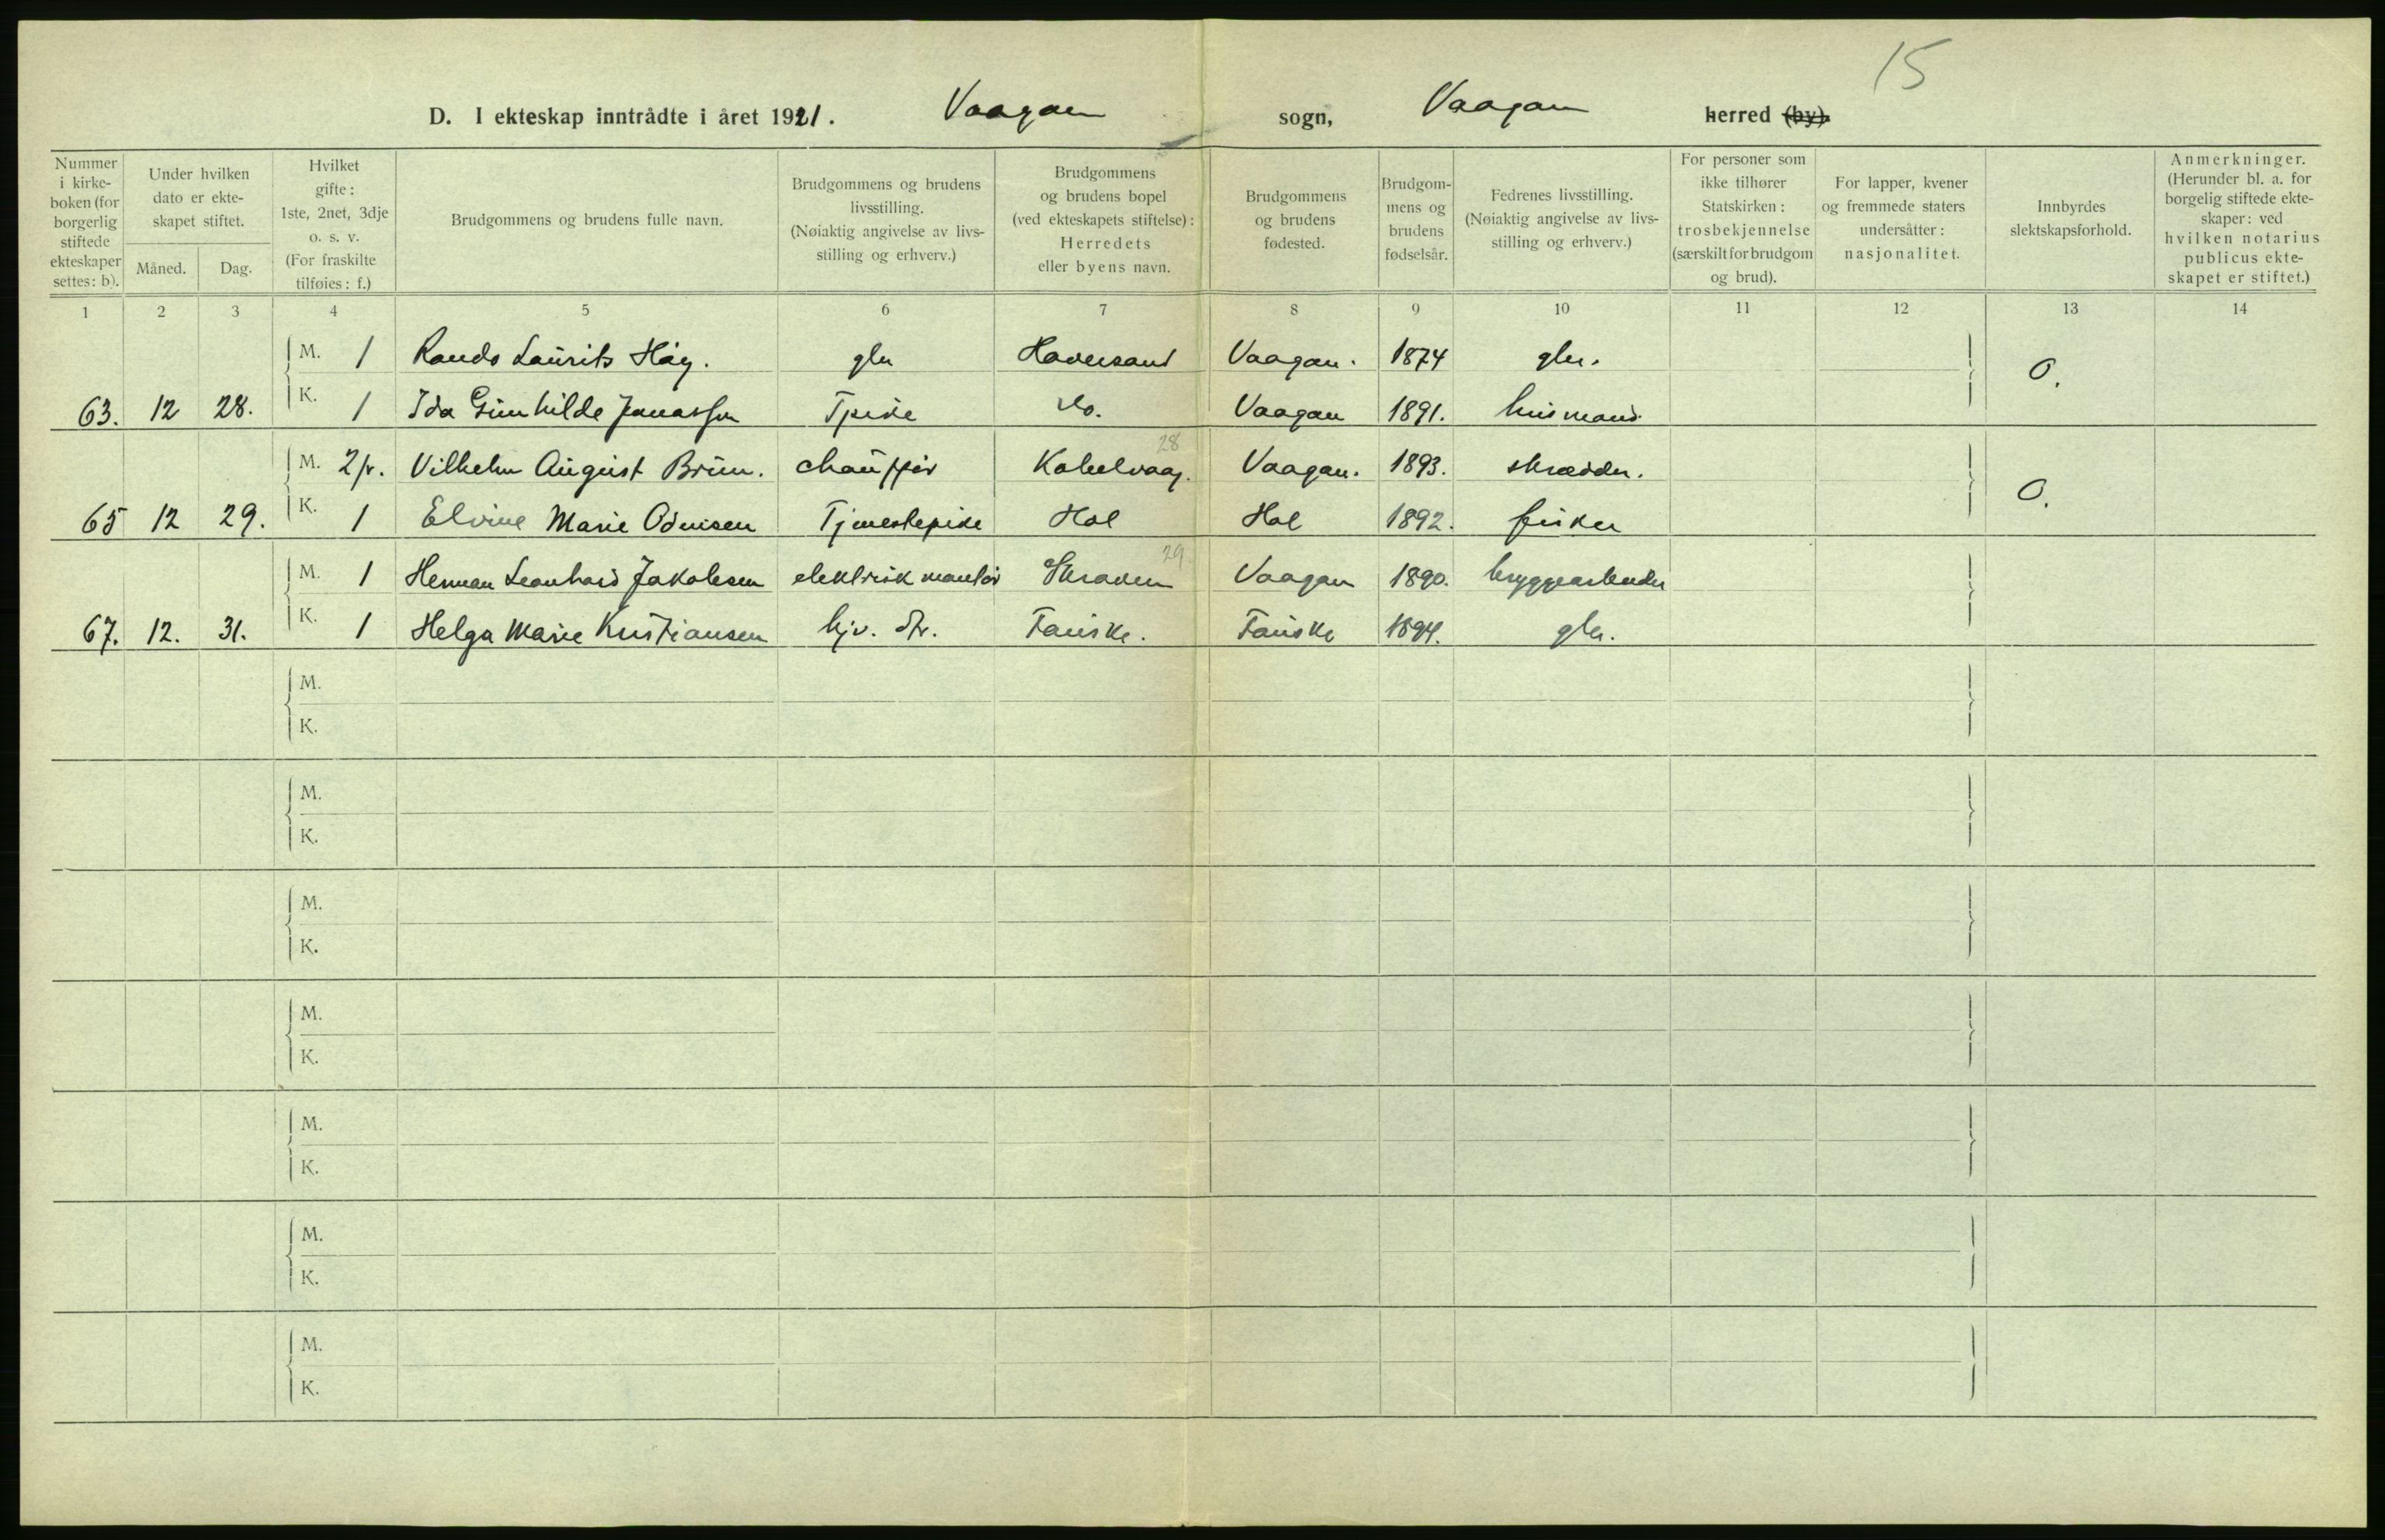 15
D. I ekteskap inntrådte i året 1921. Vaagan sogn, Vaagan herred (by).
Nummer i kirkeboken (for borgerlig stiftede ekteskaper settes: b).
Under hvilken dato er ekteskapet stiftet.
Måned.
Dag.
Hvilket gifte: 1ste, 2net, 3dje o. s. v. (For fraskilte tilføies: f.)
Brudgommens og brudens fulle navn.
Brudgommens og brudens livsstilling. (Nøiaktig angivelse av livsstilling og erhverv.)
Brudgommens og brudens bopel (ved ekteskapets stiftelse): Herredets eller byens navn.
Brudgommens og brudens fødested.
Brudgommens og brudens fødselsår.
Fedrenes livsstilling. (Nøiaktig angivelse av livsstilling og erhverv.)
For personer som ikke tilhører Statskirken: trosbekjennelse (særskilt for brudgom og brud).
For lapper, kvener og fremmede staters undersåtter: nasjonalitet.
Innbyrdes slektskapsforhold.
Anmerkninger. (Herunder bl. a. for borgelig stiftede ekteskaper: ved hvilken notarius publicus ekteskapet er stiftet.)
1 2 3 4 5 6 7 8 9 10 11 12 13 14
M. 1 Laurits Vaagan. 1874 0.
63. 12 28. K. 1 Ida Gunhilde Tpike do. Vaagan 1891. husmand
28
M. 2 Vilhelm August Bruun. Kabelvaag. Vaagan. 1893. skrædder. 0.
65 12 29. K. 1 Elvine Marie Odinsen Tjenestepike Hol Hol 1892. fisker
29
M. 1 Herman Leonhard Jakobsen elektrisk montør Skraaven Vaagan 1890. bryggearbeider
67. 12. 31. K. 1 Helga Marie Kristiansen Fauske. Fauske 1894.
M.
K.
M.
K.
M.
K.
M.
K.
M.
K.
M.
K.
M.
K.